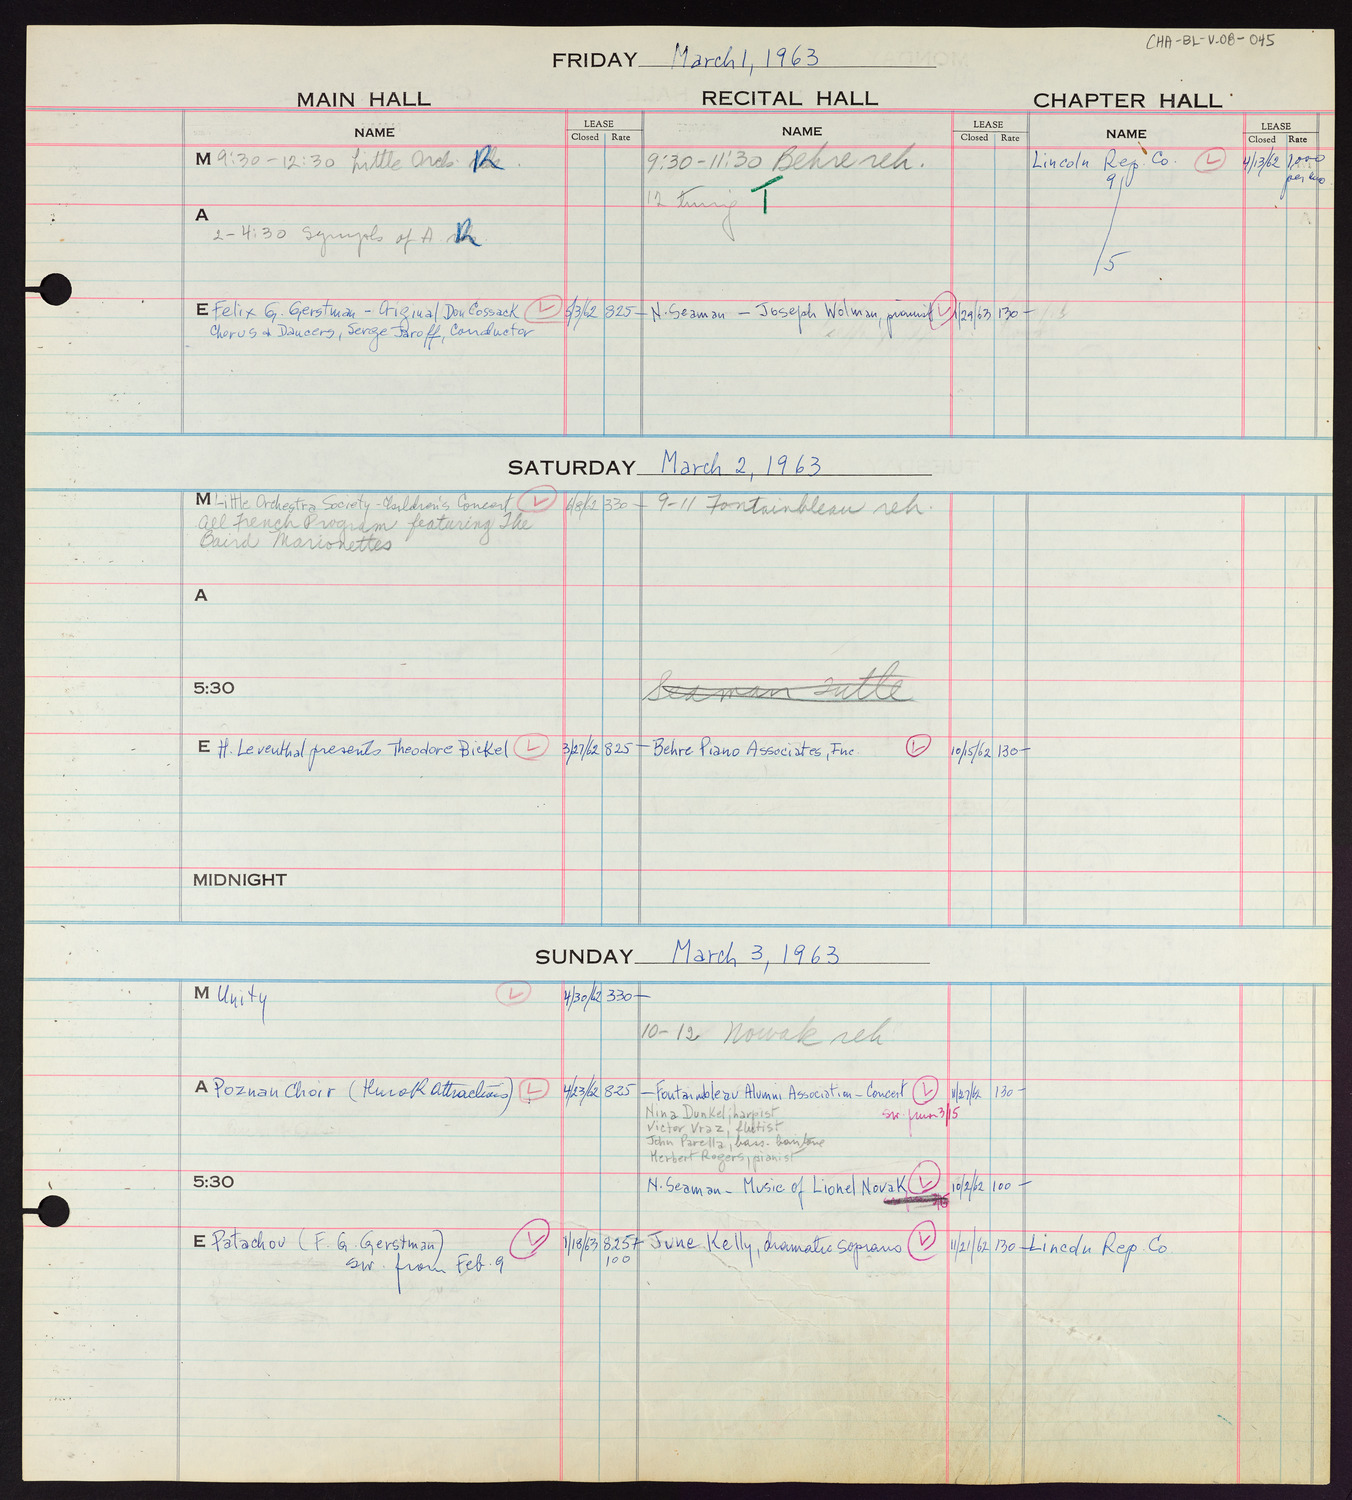 CHA-BL-V-08-045
FRIDAY March 1, 1963
MAIN HALL
RECITAL HALL
CHAPTER HALL
NAME
LEASE
Closed Rate
NAME
LEASE
Closed Rate
NAME
LEASE
Closed Rate
M 9:30-12:30 Little Orch. R
9:30-11:30 Behre reh.
Lincoln Rep. Co. L 4/13/62 1,000
9
per
12 tuning T
A
2-4:30 Symph of A. R
5
E Felix G. Gerstman - Original Don Cossack L 5/3/62 825-
Chorus & Dancers, Serge Jaroff, Conductor
N. Seaman - Joseph Wolman, pianist L 1/29/63 130-
SATURDAY March 2, 1963
M Little Orchestra Society - Children's Concert L 6/8/62 330-
All French Program featuring The
Baird Marionettes
9-11 Fontainbleau reh.
A
5:30
Seaman Tuttle
E H. Leventhal presents Theodore Bickel L 3/27/62 825-
Behre Piano Associates, Inc. L 10/15/62 130-
MIDNIGHT
SUNDAY March 3, 1963
M Unity L 4/30/62 330-
10-12 Nowak reh
A Poznan Choir (Hurok Attractions) L 4/23/62 825-
Fontainbleau Alumni Association - Concert L 11/27/62 130-
Nina Dunkel, harpist
sw. from 3/15
Victor Vraz, flutist
John Parella, bass-baritone
Herbert Rogers, pianist
5:30
N. Seaman - Music of Lionel Novak L 10/2/62 100-
E Patachou (F. G. Gerstman) L 1/18/63 825+
100
sw. from Feb. 9
June Kelly, dramatic soprano L 11/21/62 130-
Lincoln Rep. Co